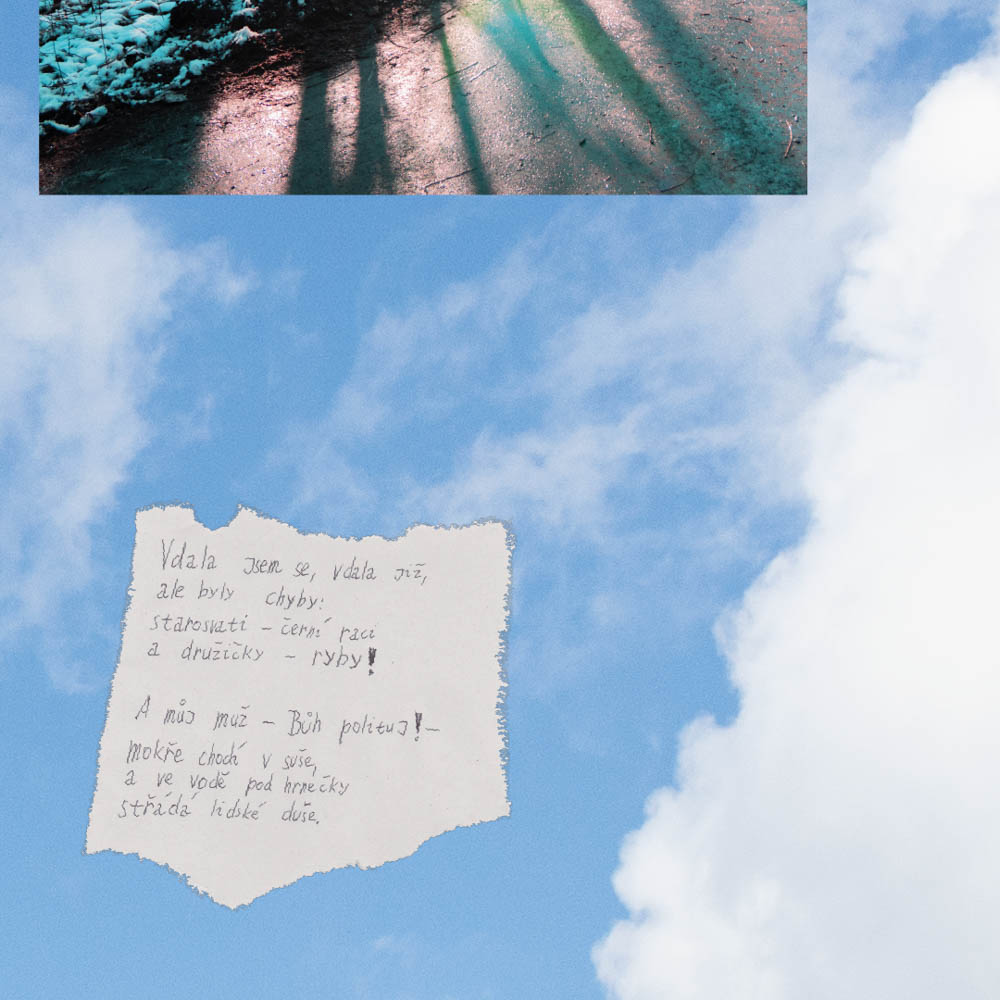 Vdala jsem se, vdala již,
ale byly chyby:
starosvati – černí raci
a družičky – ryby!
A můj muž – Bůh polituj! –
mokře chodí v suše,
a ve vodě pod hrnečky
střádá lidské duše.